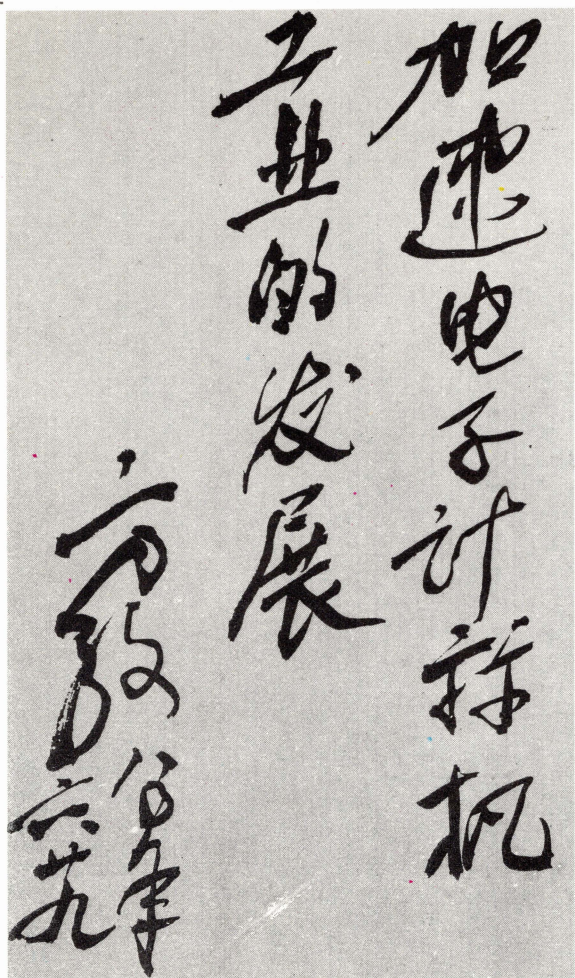 加速电子计祘机
工业的发展
方毅
年
六廿九